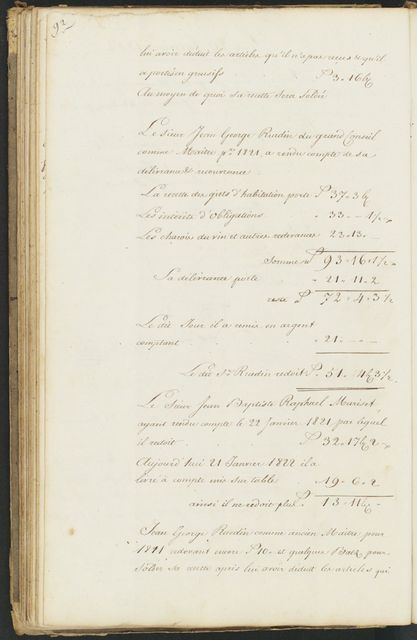 92
lui avoir déduit les articles qu'il n'a pas reçus & qu'il
a portés en gros P 3. 16
Au moyen de quoi sa recette sera soldée
Le Sieur Jean George Raedin du grand Conseil
comme Maître pr 1821, a rendu compte de sa
délivrance & recouvrance
La recette des giets d'habitation porte P 37. 3
Les intérêts d'obligations " 33. - 1/2
Les charois du vin et autres redevances 23. 13. -
Somme P 93. 16. 1/2
Sa délivrance porte . 21. 11. 2
reste P 72. 4. 3 1/2
Le dit Jour il a remis en argent
comptant . 21. - -
Le dit Sr Raedin redoit P. 51. 4 3 1/2
Le Sieur Jean Baptiste Raphael Muriset
ayant rendu compte le 22 Janvier 1821 par lequel
il redoit P 32. 17 2
Aujourd'hui 21 Janvier 1822 il a
livré à compte mis sur table . 19. 6. 2
ainsi il ne redoit plus P 13. 11
Jean George Raedin comme ancien Maître pour
1821 redevant encore P 10. et quelques Batz pour
solder sa recette après lui avoir déduit les articles qui